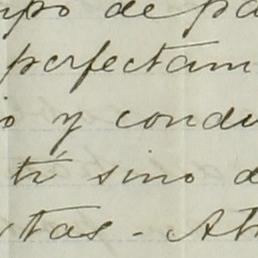 mpo de pa
perfectam
o y condu
tí sino d
tas - At